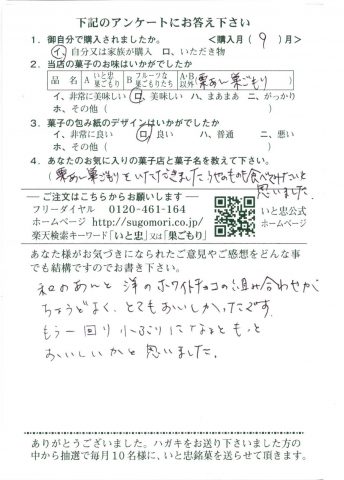 下記のアンケートにお答え下さい
1. 御自分で購入されましたか。 <購入月( 9 )月>
イ、自分又は家族が購入 ロ、いただき物
2. 当店の菓子のお味はいかがでしたか
品 名 A いと忠巣ごもり B フルーツな巣ごもりたち A・B以外 栗あん巣ごもり
イ、非常に美味しい ロ、美味しい ハ、まあまあ ニ、がっかり
ホ、その他( )
3. 菓子の包み紙のデザインはいかがでしたか
イ、非常に良い ロ、良い ハ、普通 ニ、悪い
ホ、その他( )
4. あなたのお気に入りの菓子店と菓子名を教えて下さい。
栗あん巣ごもりをいただきましたが他のものも食べてみたいと
思いました。
ご注文はこちらからお願いします
フリーダイヤル 0120-461-164
ホームページ http://sugomori.co.jp/
楽天検索キーワード「いと忠」又は「巣ごもり」
いと忠公式
ホームページ
あなた様がお気づきになられたご意見やご感想をどんな事
でも結構ですのでお書き下さい。
和のあんと 洋のホワイトチョコの組み合わせが
ちょうどよく、とてもおいしかったです。
もう一回り 小ぶりになるともっと
おいしいかと思いました。
ありがとうございました。ハガキをお送り下さいました方の
中から抽選で毎月10名様に、いと忠銘菓を送らせて頂きます。